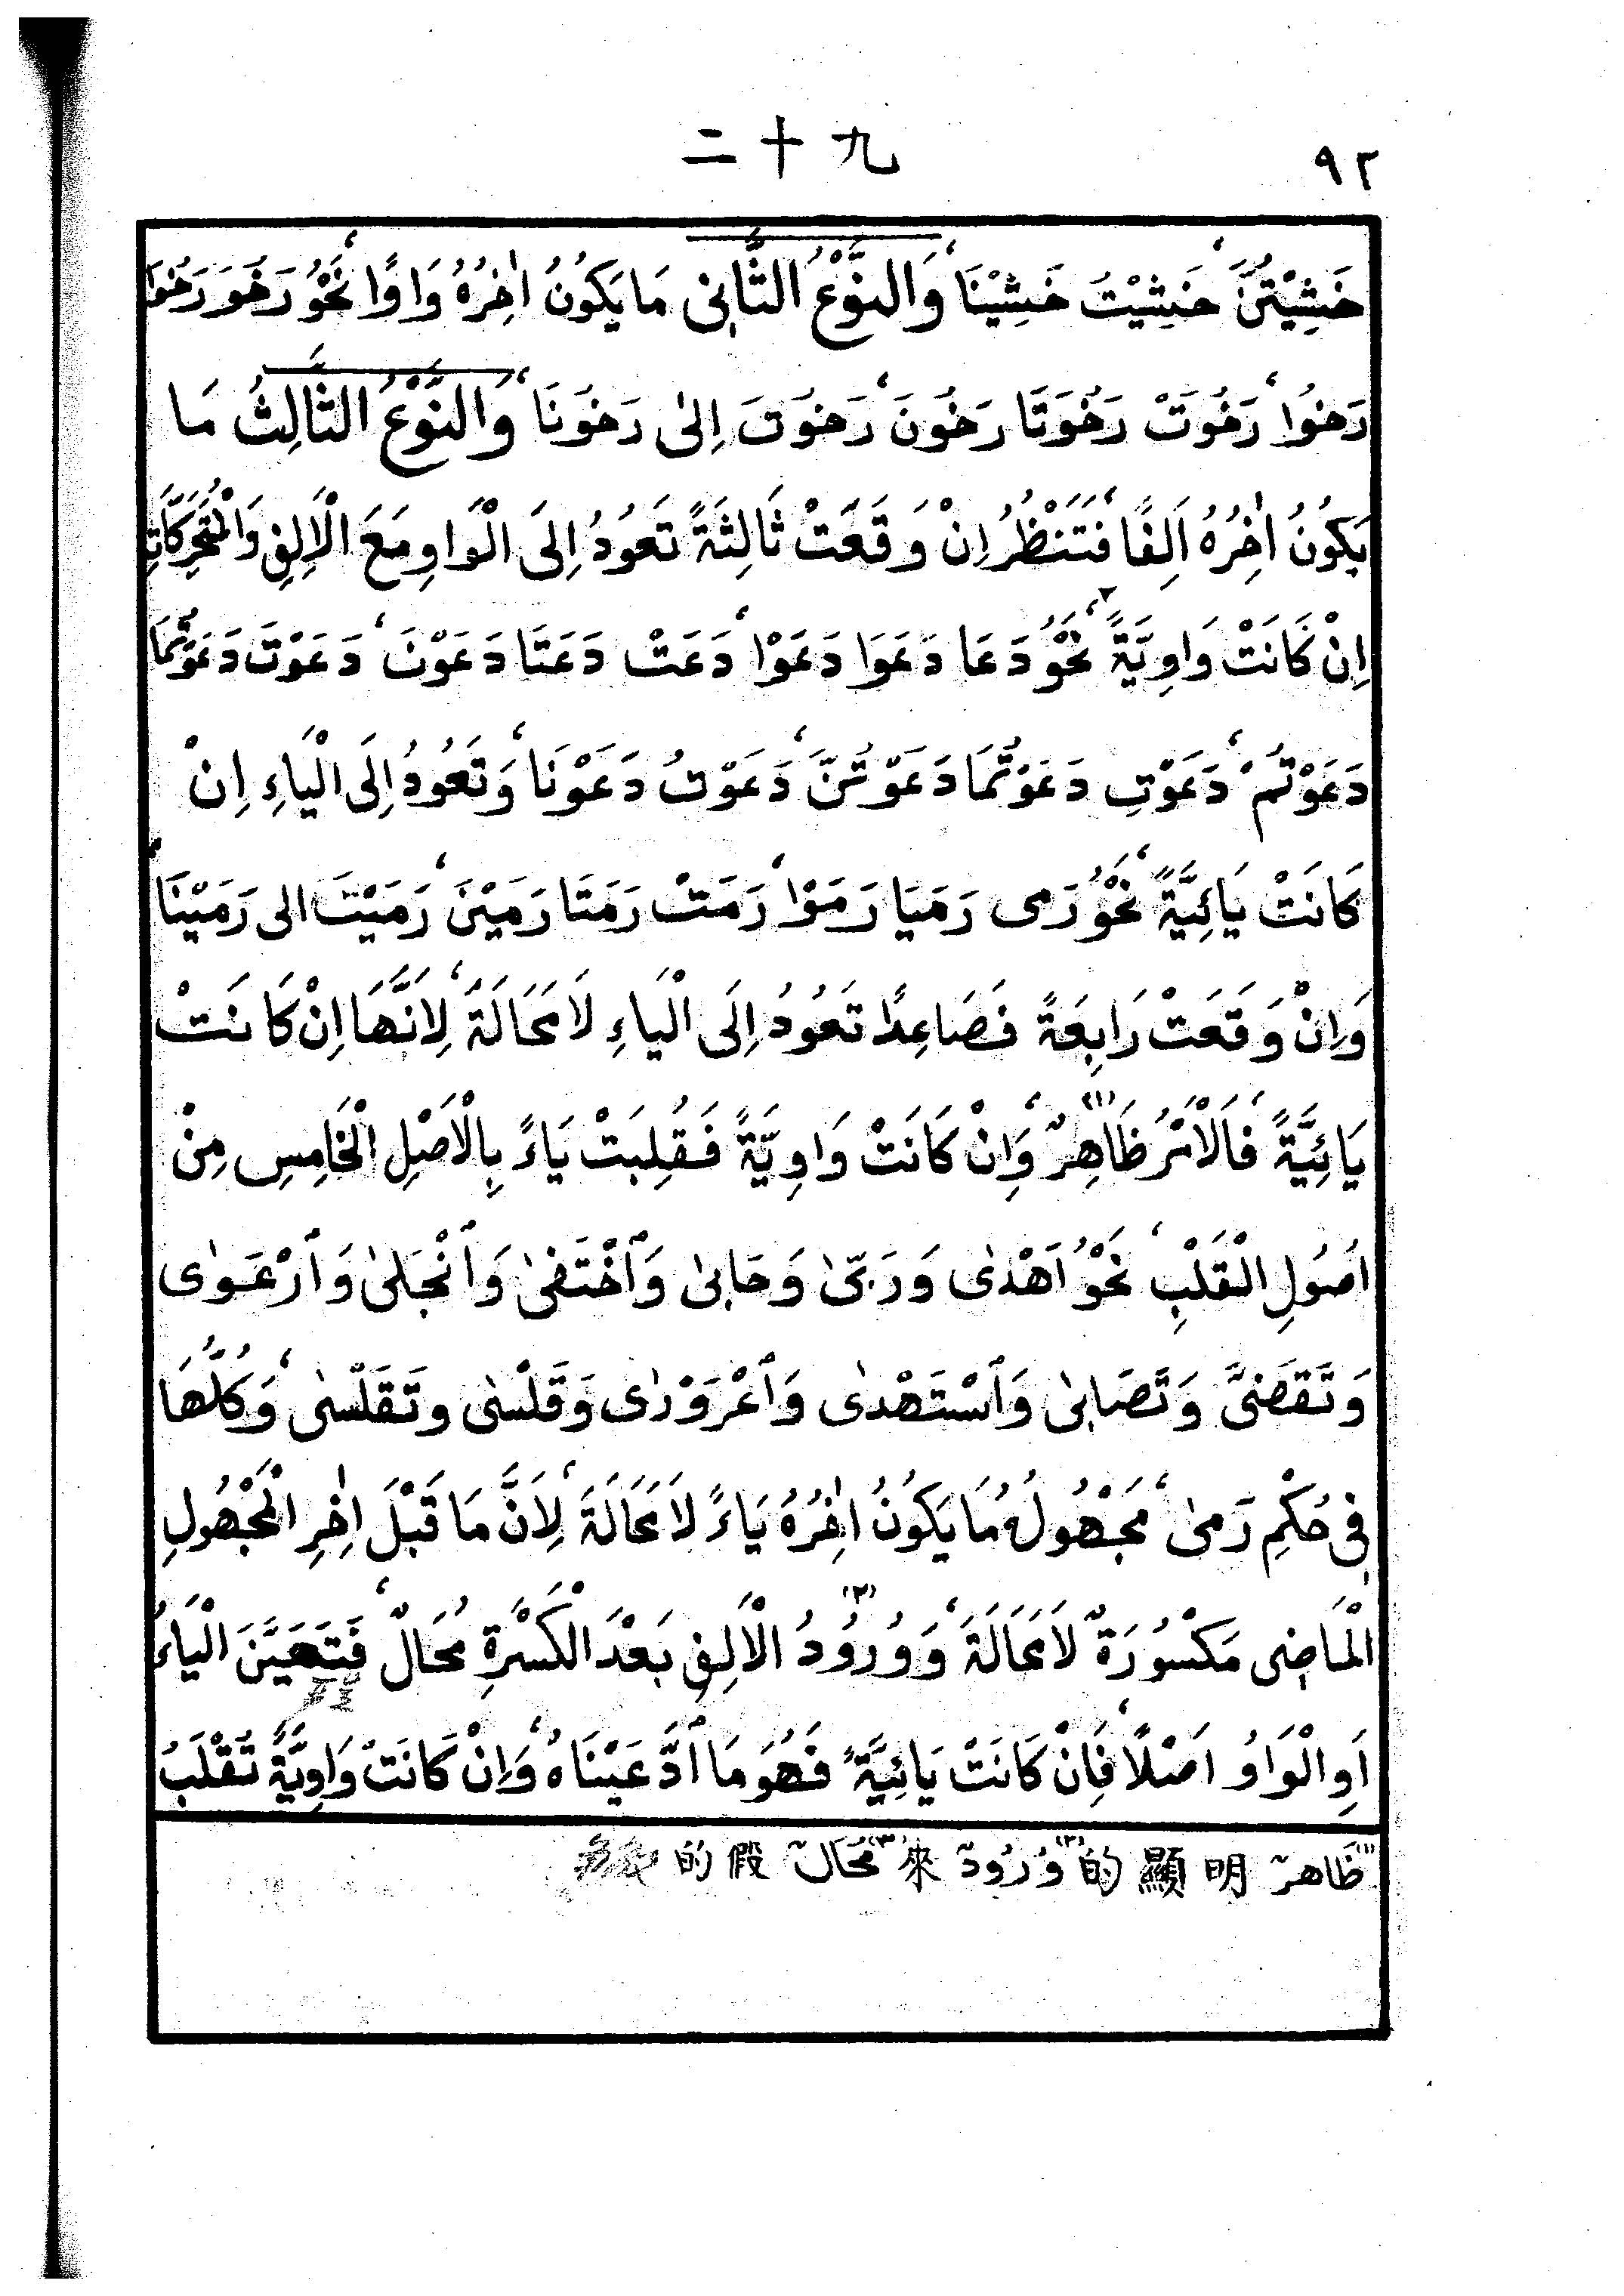 二十九
٩٢
خَشِيْتُنَّ، خَشِيْتُ خَشِيْنَا، وَالنَّوْعُ الثَّانِى مَا يَكُونُ اٰخِرُهُ وَاوًا، نَحْوُ رَخُوَ رَخُوَا
رَخُوْا، رَخُوَتْ رَخُوَتَا رَخُوْنَ، رَخُوْتَ اِلىٰ رَخُوْنَا، وَالنَّوْعُ الثَّالِثُ مَا
يَكُونُ اٰخِرُهُ اَلِفًا، فَتَنْظُرُ اِنْ وَقَعَتْ ثَالِثَةً تَعُودُ اِلَى الْوَاوِ مَعَ الْاَلِفِ وَالْمُتَحَرِّكَاتِ
اِنْ كَانَتْ وَاوِيَّةً، نَحْوُ دَعَا دَعَوَا دَعَوْا، دَعَتْ دَعَتَا دَعَوْنَ، دَعَوْتَ دَعَوْتُمَا
دَعَوْتُمْ، دَعَوْتِ دَعَوْتُمَا دَعَوْتُنَّ، دَعَوْتُ دَعَوْنَا، وَتَعُودُ اِلَى الْيَاءِ اِنْ
كَانَتْ يَائِيَّةً، نَحْوُ رَمى رَمَيَا رَمَوْا، رَمَتْ رَمَتَا رَمَيْنَ، رَمَيْتَ الى رَمَيْنَا،
وَاِنْ وَقَعَتْ رَابِعَةً فَصَاعِدًا تَعُودُ اِلَى الْيَاءِ لَا مَحَالَةَ، لِاَنَّهَا اِنْ كَانَتْ
يَائِيَّةً، فَالْاَمْرُ ظَاهِرٌ(١)، وَاِنْ كَانَتْ وَاوِيَّةً فَقُلِبَتْ يَاءً بِالْاَصْلِ الْخَامِسِ مِنْ
اُصُولِ الْقَلْبِ، نَحْوُ اَهْدىٰ وَرَبّىٰ وَحَابىٰ وَٱخْتَفىٰ وَٱنْجَلىٰ وَٱرْعَوٰى
وَتَقَضّىٰ وَتَصَابىٰ وَٱسْتَهْدىٰ وَٱعْرَوْرٰى وَقَلْسٰى وتَقَلْسٰى، وَكُلُّهَا
فِى حُكْمِ رَمىٰ، مَجْهُولُهُ مَا يَكُونُ اٰخِرُهُ يَاءً لَا مَحَالَةَ، لِاَنَّ مَا قَبْلَ اٰخِرِ الْمَجْهُولِ
الْمَاضِى مَكْسُورَةٌ لَا مَحَالَةَ، وَوُرُودُ(٢) الْاَلِفِ بَعْدَ الْكَسْرَةِ مُحَالٌ، فَتَعَيَّنَ الْيَاءُ
اَوِ الْوَاوُ اَصْلًا، فَاِنْ كَانَتْ يَائِيَّةً فَهُوَ مَا ٱدَّعَيْنَاهُ، وَاِنْ كَانَتْ وَاوِيَّةً تُقْلَبُ
(١) ظَاهرٌ 明顯的 (٢) وُرُودٌ 來 (٣) مُحَالٌ 假的